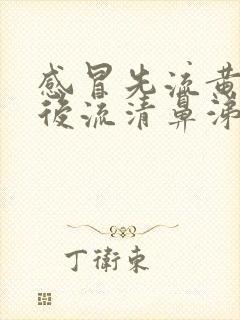 感冒先流黄
後流清鼻涕
丁衛東